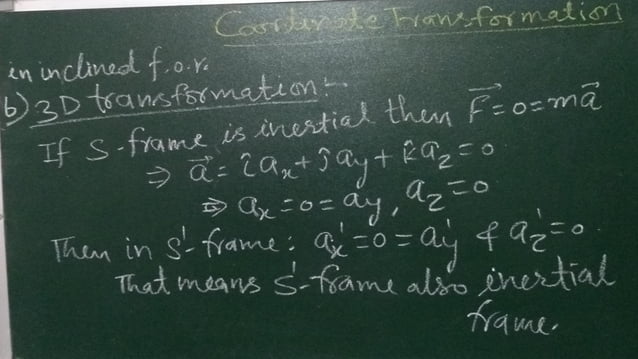 Coordinate Transformation
in inclined f.o.r.
b) 3D transformation:-
If S-frame is inertial then F⃗=0=ma⃗
⇒ a⃗ = îaₓ+ĵa_y+k̂a_z=0
⇒ aₓ=0=a_y, a_z=0
Then in S'-frame: aₓ'=0=a_y' & a_z'=0.
That means S'-frame also inertial
frame.